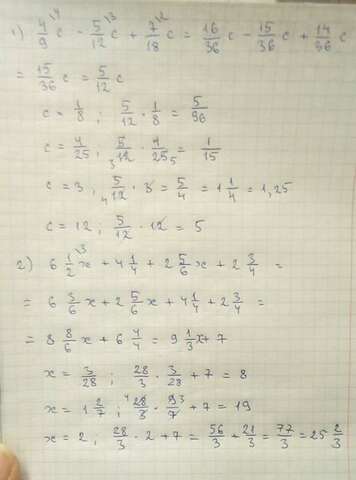 1) 4/9 \4 c - 5/12 \3 c + 7/18 \2 c = 16/36 c - 15/36 c + 14/36 c
= 15/36 c = 5/12 c
c = 1/8 ; 5/12 · 1/8 = 5/96
c = 4/25 ; 5/12 3 · 4/25 5 = 1/15
c = 3 ; 4 5/12 · 3 = 5/4 = 1 1/4 = 1,25
c = 12 ; 5/12 · 12 = 5
2) 6 1/2 \3 x + 4 1/4 + 2 5/6 x + 2 3/4 =
= 6 3/6 x + 2 5/6 x + 4 1/4 + 2 3/4 =
= 8 8/6 x + 6 4/4 = 9 1/3 x + 7
x = 3/28 ; 28/3 · 3/28 + 7 = 8
x = 1 2/7 ; 4 28/3 · 9 3/7 + 7 = 19
x = 2 ; 28/3 · 2 + 7 = 56/3 + 21/3 = 77/3 = 25 2/3